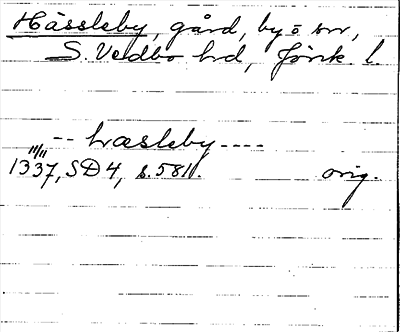 Hässleby, gård, by o sn,
S. Vedbo hd, Jönk. l.
-- hæsleby ----
11/11
1337, SD 4, s. 581. orig.